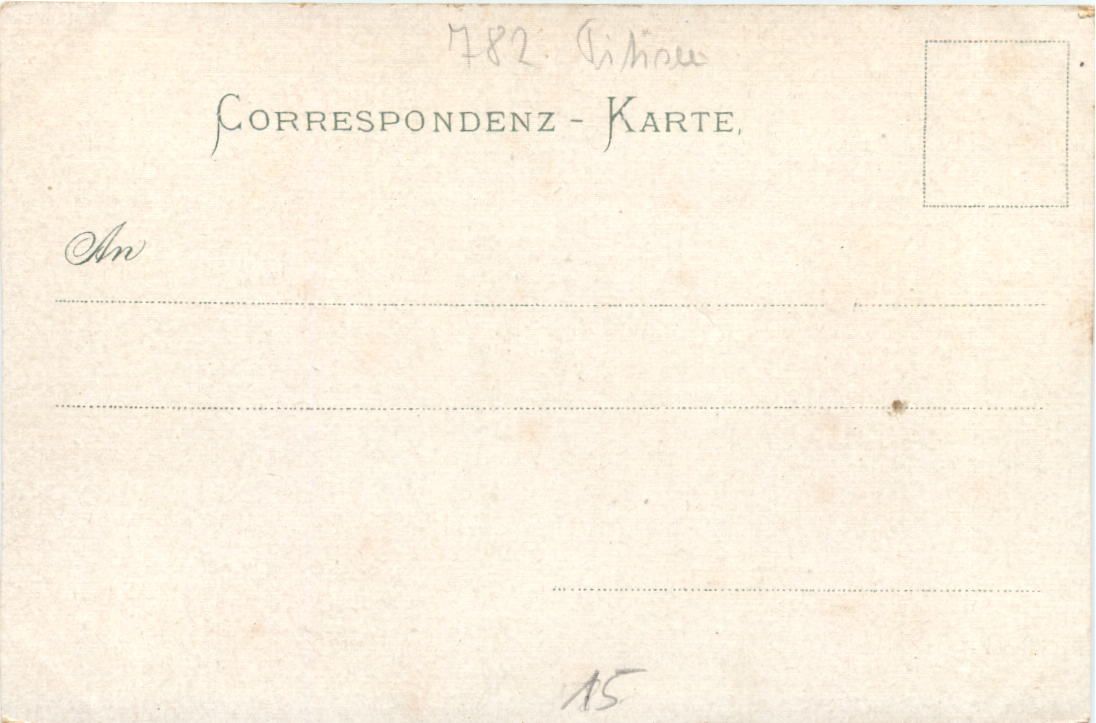 782. Titisee
CORRESPONDENZ - KARTE,
An
15